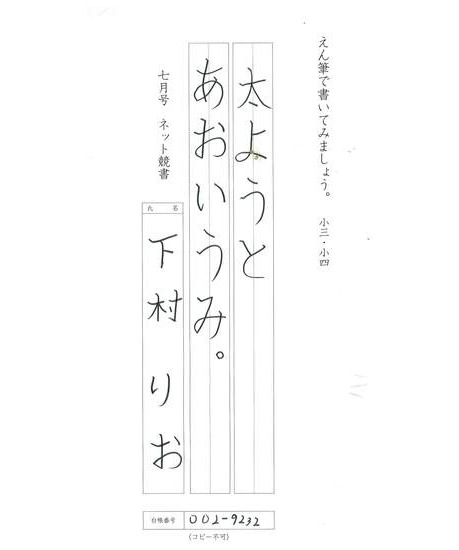 えん筆で書いてみましょう。 小三・小四
太ようと
あおいうみ。
七月号 ネット競書
氏名
下村りお
台帳番号 002-9232
(コピー不可)